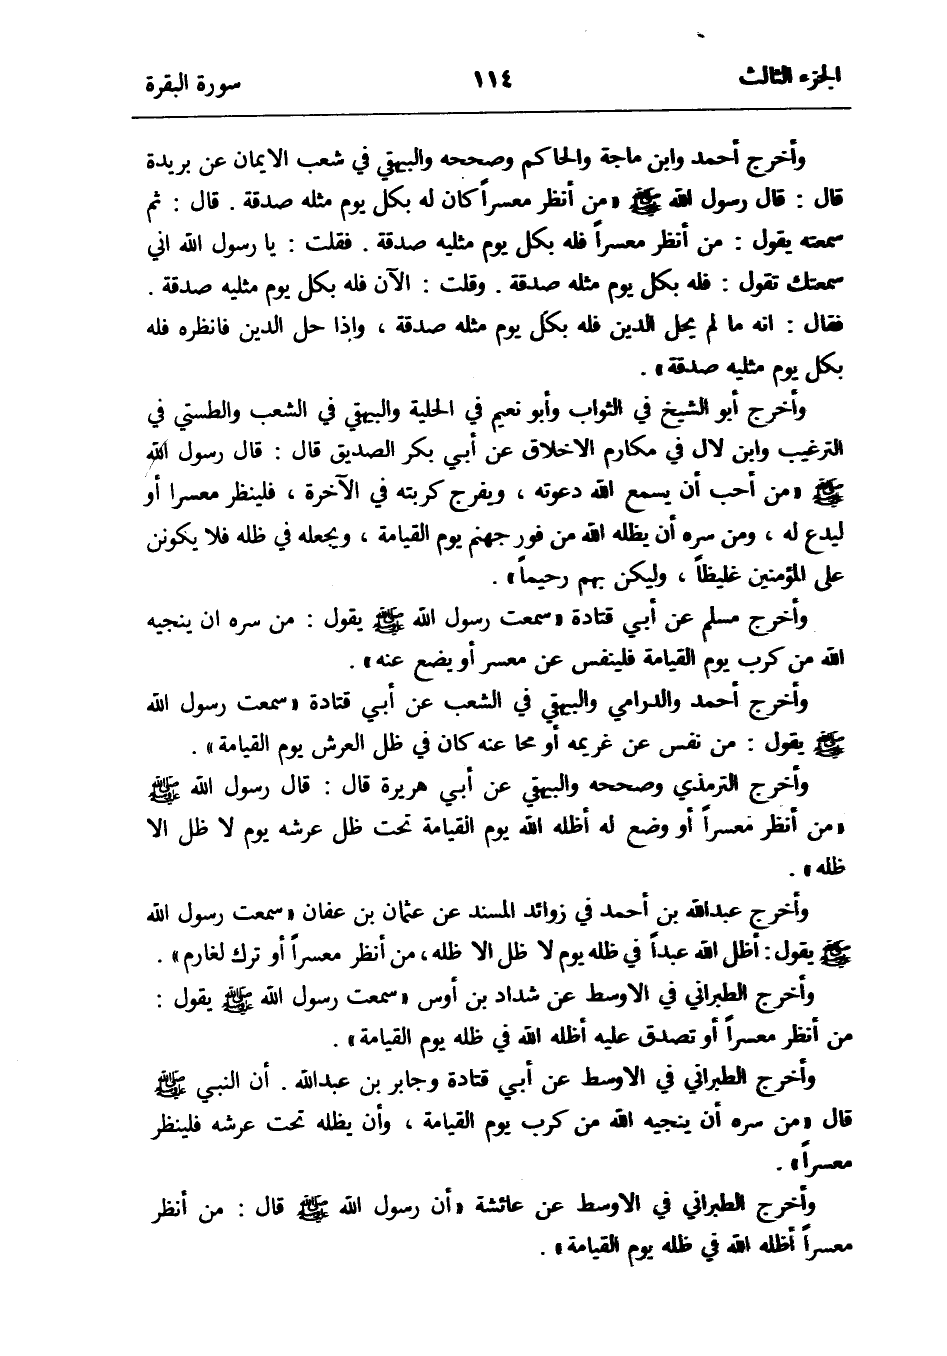 الجزء الثالث ١١٤ سورة البقرة
وأخرج أحمد وابن ماجة والحاكم وصححه والبيهقي في شعب الايمان عن بريدة
قال : قال رسول الله ﷺ «من أنظر معسراً كان له بكل يوم مثله صدقة . قال : ثم
سمعته يقول : من أنظر معسراً فله بكل يوم مثليه صدقة . فقلت : يا رسول الله اني
سمعتك تقول : فله بكل يوم مثله صدقة . وقلت : الآن فله بكل يوم مثليه صدقة .
فقال : انه ما لم يحل الدين فله بكل يوم مثله صدقة ، واذا حل الدين فانظره فله
بكل يوم مثليه صدقة» .
وأخرج أبو الشيخ في الثواب وأبو نعيم في الحلية والبيهقي في الشعب والطستي في
الترغيب وابن لال في مكارم الاخلاق عن أبي بكر الصديق قال : قال رسول الله
ﷺ «من أحب أن يسمع الله دعوته ، ويفرج كربته في الآخرة ، فلينظر معسرا أو
ليدع له ، ومن سره أن يظله الله من فور جهنم يوم القيامة ، ويجعله في ظله فلا يكونن
على المؤمنين غليظاً ، وليكن بهم رحيماً» .
وأخرج مسلم عن أبي قتادة «سمعت رسول الله ﷺ يقول : من سره ان ينجيه
الله من كرب يوم القيامة فلينفس عن معسر أو يضع عنه» .
وأخرج أحمد والدرامي والبيهقي في الشعب عن أبي قتادة «سمعت رسول الله
ﷺ يقول : من نفس عن غريمه أو محا عنه كان في ظل العرش يوم القيامة» .
وأخرج الترمذي وصححه والبيهقي عن أبي هريرة قال : قال رسول الله ﷺ
«من أنظر معسراً أو وضع له أظله الله يوم القيامة تحت ظل عرشه يوم لا ظل الا
ظله» .
وأخرج عبدالله بن أحمد في زوائد المسند عن عثمان بن عفان «سمعت رسول الله
ﷺ يقول: أظل الله عبداً في ظله يوم لا ظل الا ظله، من أنظر معسراً أو ترك لغارم» .
وأخرج الطبراني في الاوسط عن شداد بن أوس «سمعت رسول الله ﷺ يقول :
من أنظر معسراً أو تصدق عليه أظله الله في ظله يوم القيامة» .
وأخرج الطبراني في الاوسط عن أبي قتادة وجابر بن عبدالله . أن النبي ﷺ
قال «من سره أن ينجيه الله من كرب يوم القيامة ، وأن يظله تحت عرشه فلينظر
معسراً» .
وأخرج الطبراني في الاوسط عن عائشة «أن رسول الله ﷺ قال : من أنظر
معسراً أظله الله في ظله يوم القيامة» .